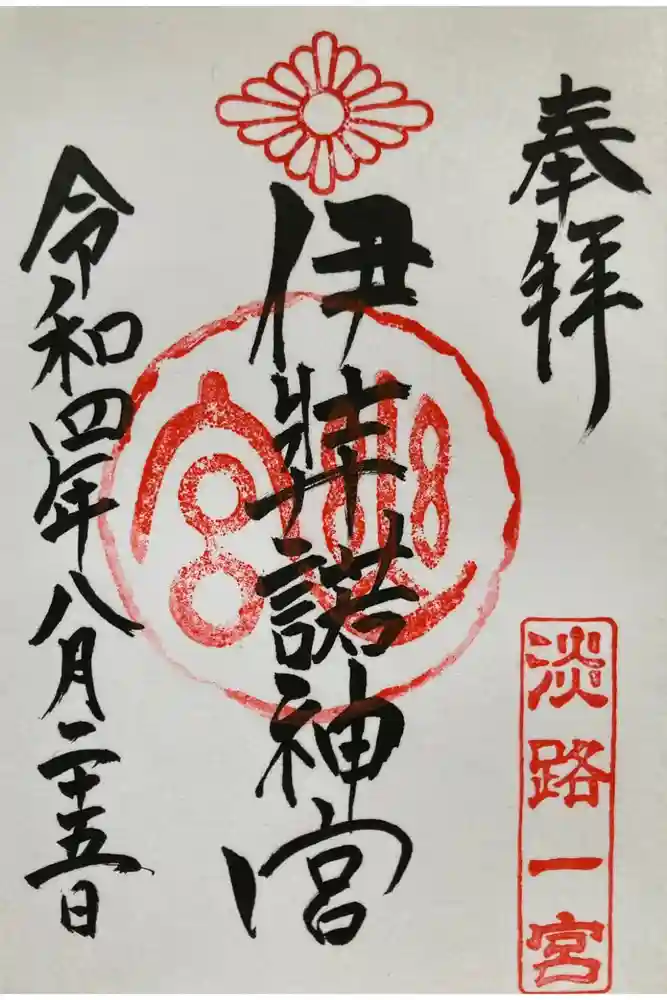 奉拝
淡路一宮
伊弉諾神宮
令和四年八月二十五日